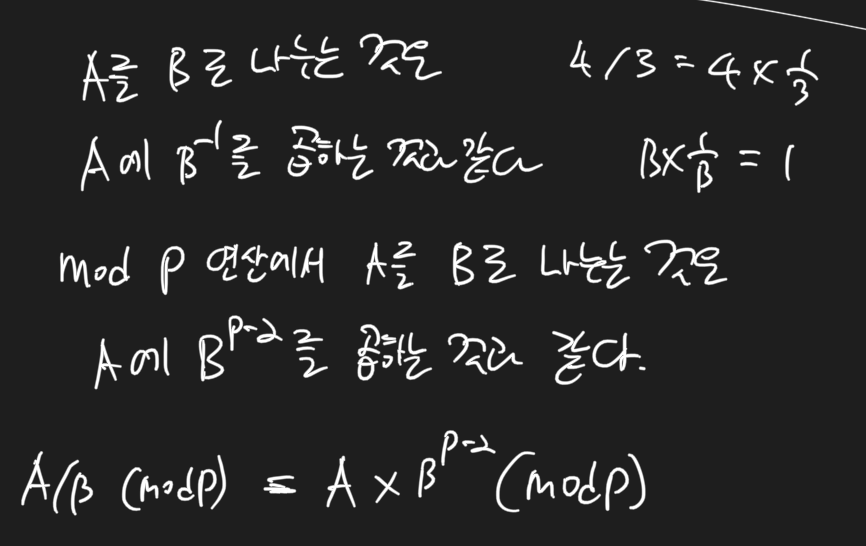 A를 B로 나누는 것은
4/3 = 4 × 1/3
A에 B^-1를 곱하는 것과 같다
B × 1/B = 1
mod P 연산에서 A를 B로 나누는 것은
A에 B^P-2를 곱하는 것과 같다.
A/B (mod P) = A × B^P-2 (mod P)